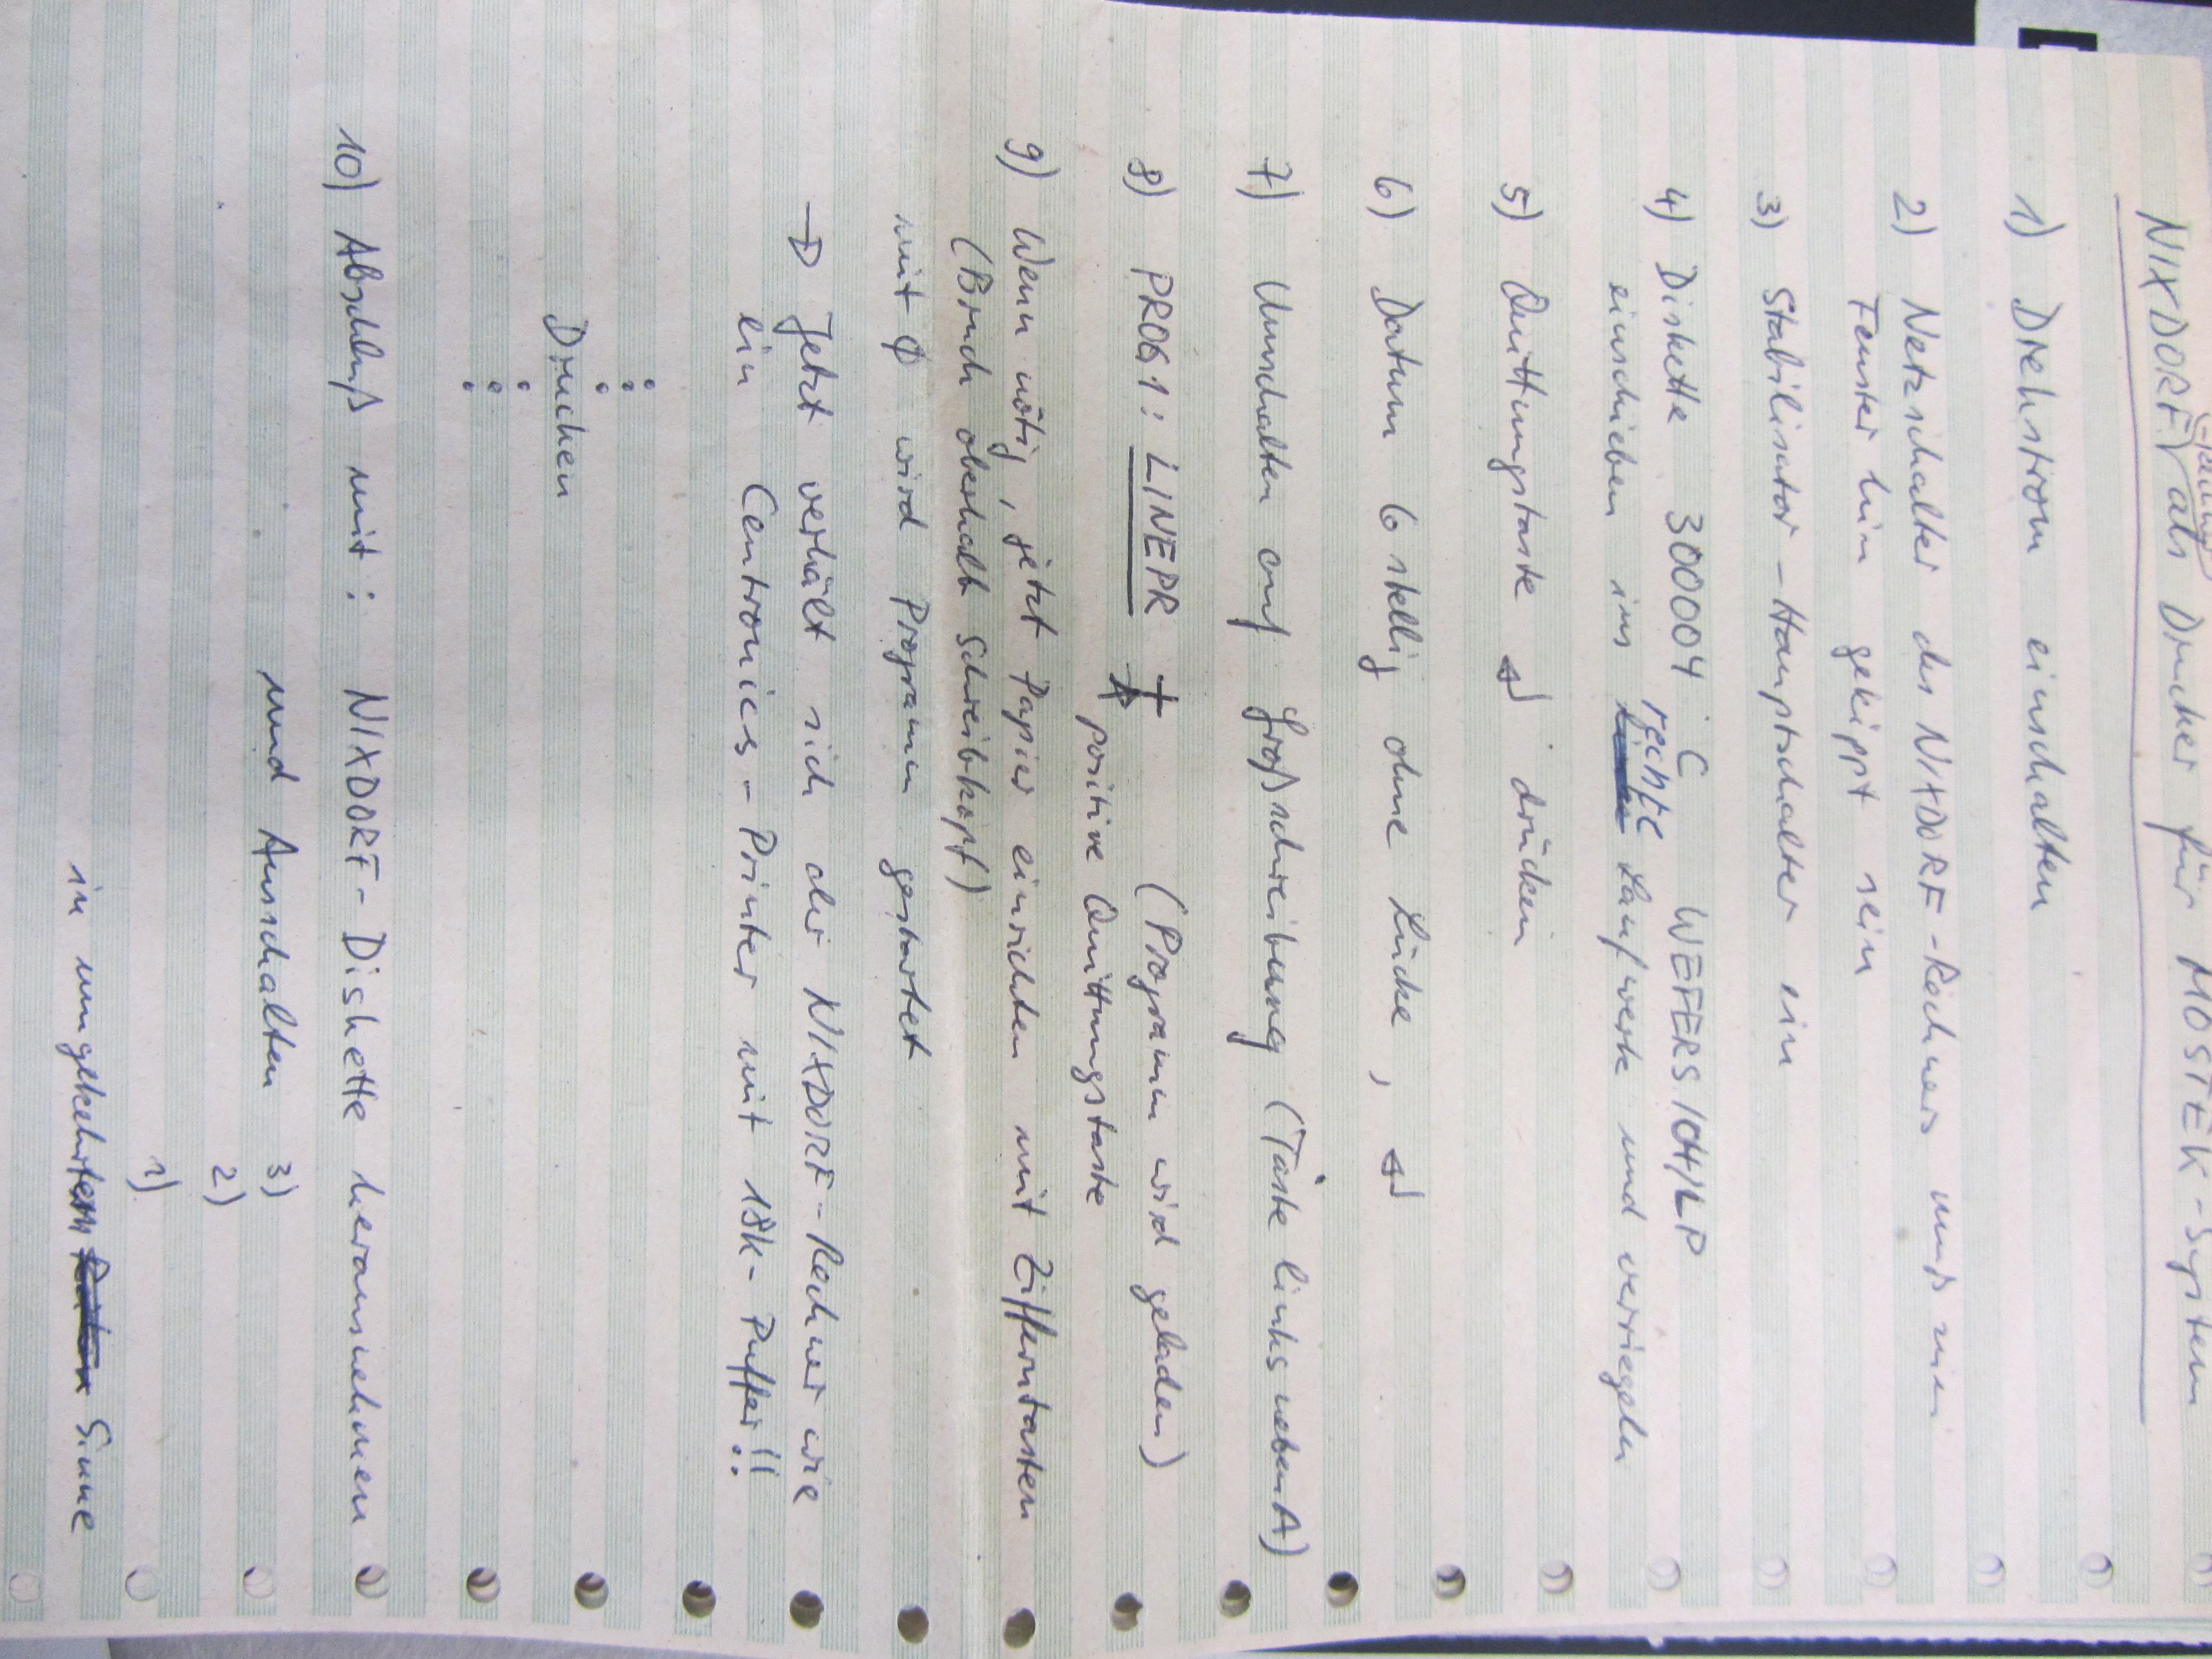 -Rechner
NIXDORF als Drucker für MOSTEK-System
1) Drehstrom einschalten
2) Netzschalter des NIXDORF-Rechners muß zum
Fenster hin gekippt sein
3) Stabilisator-Hauptschalter ein
4) Diskette 300004 C WEFERS/CH/LP
rechte
einschieben ins linke Laufwerk und verriegeln
5) Quittungstaste ↲ drücken
6) Datum 6stellig ohne Lücke, ↲
7) Umschalten auf Großschreibung (Taste links neben A)
8) PROG1: LINEPR + (Programm wird geladen)
positive Quittungstaste
9) Wenn nötig, jetzt Papier einrichten mit Zifferntasten
(Bruch oberhalb Schreibkopf)
mit Ø wird Programm gestartet
→ Jetzt verhält sich der NIXDORF-Rechner wie
ein Centronics-Printer mit 18k-Puffer!!
Drucken
10) Abschluß mit: NIXDORF-Diskette herausnehmen
und Ausschalten 3)
2)
1)
in umgekehrtem Sinne